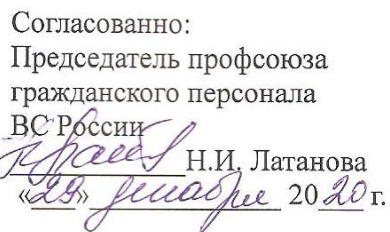 Согласованно:
Председатель профсоюза
гражданского персонала
ВС России
Н.И. Латанова
«29» декабря 2020 г.